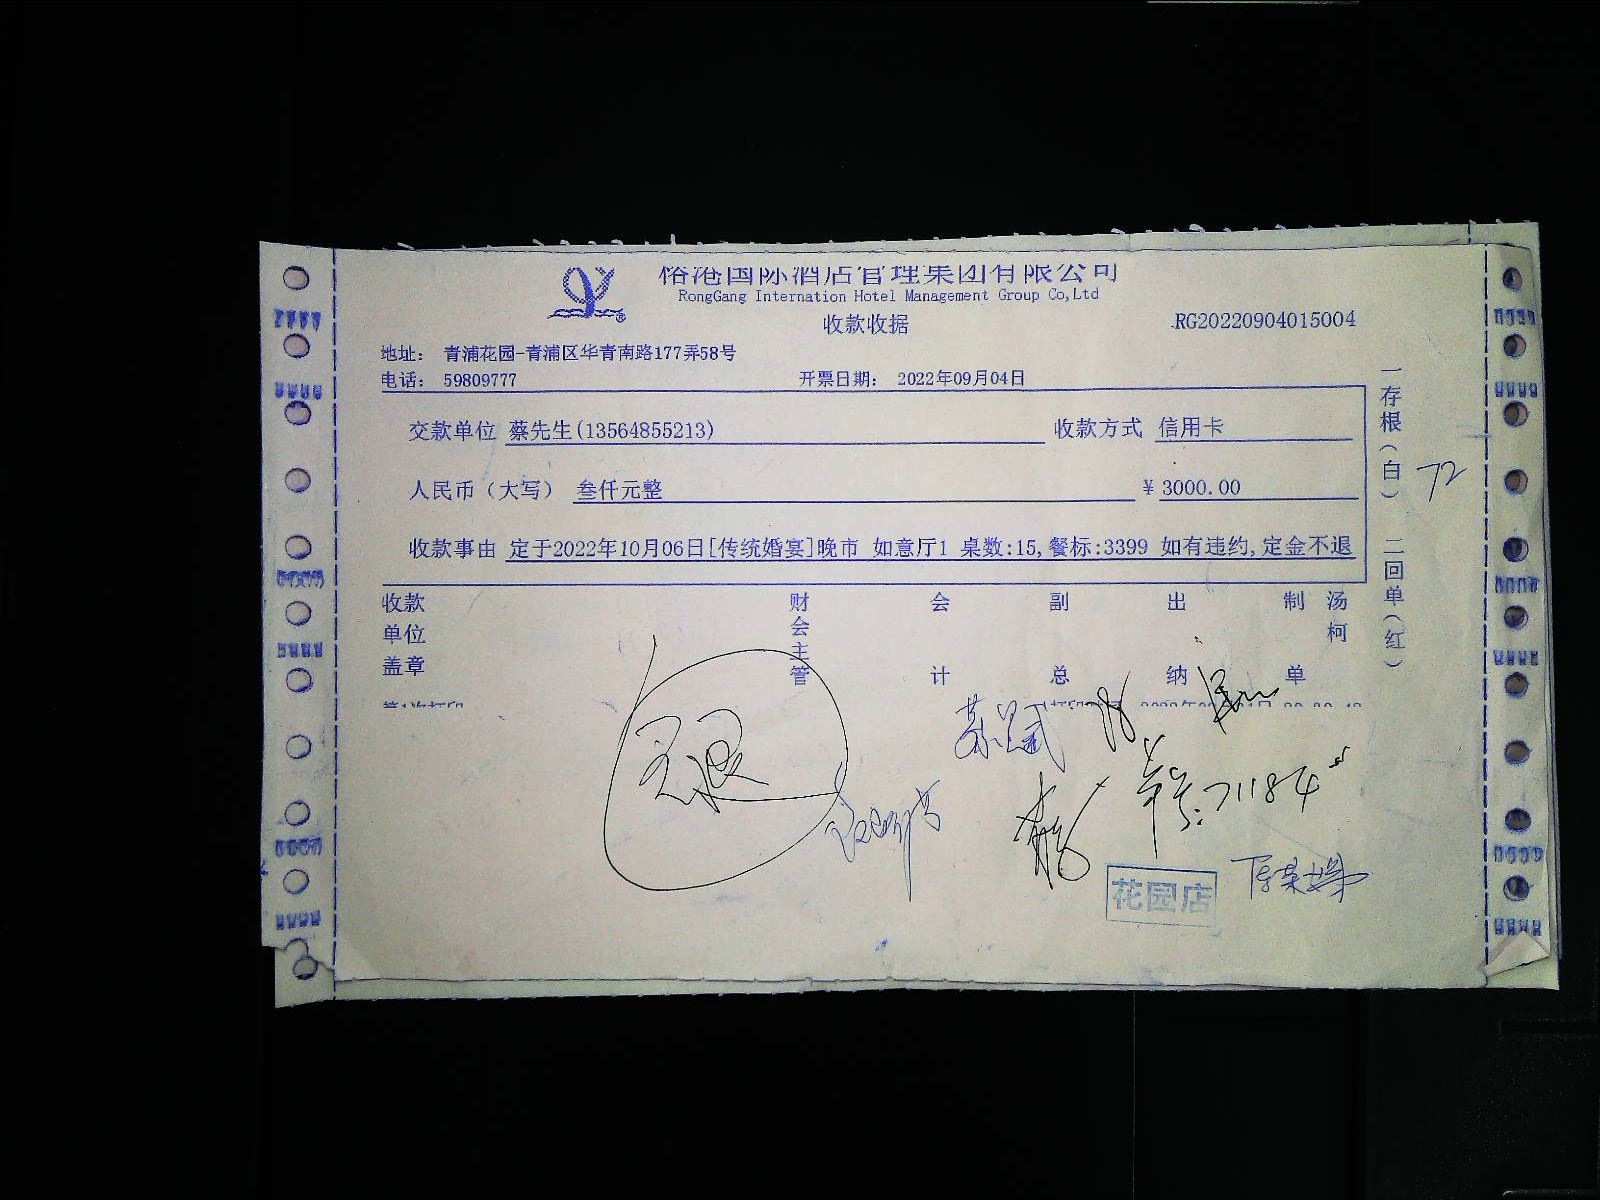 榕港国际酒店管理集团有限公司
RongGang Internation Hotel Management Group Co,Ltd
收款收据
RG20220904015004
地址： 青浦花园-青浦区华青南路177弄58号
电话： 59809777 开票日期： 2022年09月04日
交款单位 蔡先生(13564855213) 收款方式 信用卡
人民币（大写） 叁仟元整 ¥ 3000.00
收款事由 定于2022年10月06日[传统婚宴]晚市 如意厅1 桌数:15,餐标:3399 如有违约,定金不退
收款单位盖章 财会主管 会计 副总 出纳 制单 汤柯
一存根(白) 二回单(红)
72
71184
花园店